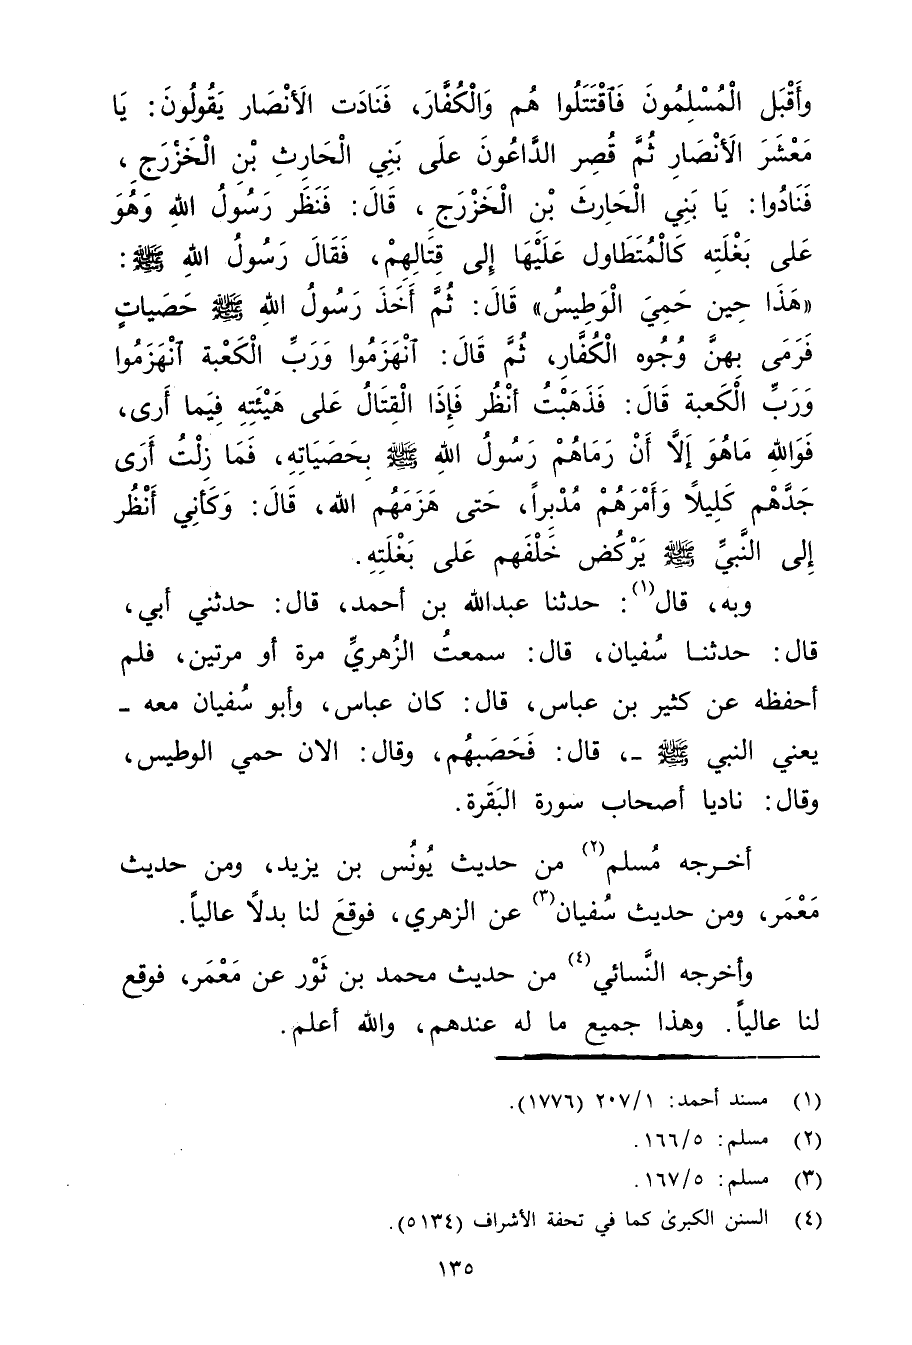 وأَقْبَل الْمُسْلِمُونَ فَٱقْتَتَلُوا هُم وَالْكُفَّارَ، فَنَادَت الأَنْصَار يَقُولُونَ: يَا
مَعْشَرَ الأَنْصَارِ ثُمَّ قُصِر الدَّاعُونَ علَى بَنِي الْحَارِثِ بْنِ الْخَزْرَجِ،
فَنَادُوا: يَا بَنِي الْحَارِثَ بْنِ الْخَزْرَجِ، قَالَ: فَنَظَر رَسُولُ اللهِ وَهُوَ
عَلى بَغْلَتِه كَالْمُتَطَاول عَلَيْهَا إِلى قِتَالِهِمْ، فَقَالَ رَسُولُ اللهِ ﷺ:
«هَذَا حِين حَمِيَ الْوَطِيسُ» قَالَ: ثُمَّ أَخَذَ رَسُولُ اللهِ ﷺ حَصَياتٍ
فَرَمَى بِهِنَّ وُجُوه الْكُفَّارِ، ثُمَّ قَالَ: ٱنْهَزَمُوا وَرَبِّ الْكَعْبة ٱنْهَزَمُوا
وَرَبِّ الْكَعبة قَالَ: فَذَهَبْتُ أنْظُر فَإِذَا الْقِتَالُ عَلى هَيْئَتِهِ فِيَما أَرى،
فَوَاللهِ مَاهُوَ إلاَّ أَنْ رَمَاهُمْ رَسُولُ اللهِ ﷺ بِحَصَيَاتِهِ، فَمَا زِلْتُ أَرَى
جَدَّهْم كَلِيلاً وَأَمْرَهُمْ مُدْبِراً، حَتى هَزَمَهُم الله، قَالَ: وَكَأَنِي أَنْظُر
إِلى النَّبيِّ ﷺ يَرْكُض خَلْفَهم عَلى بَغْلَتِهِ.
وبه، قال(١): حدثنا عبدالله بن أحمد، قال: حدثني أبي،
قال: حدثنـا سُفيان، قال: سمعتُ الزُهريِّ مرة أو مرتين، فلم
أحفظه عن كثير بن عباس، قال: كان عباس، وأبو سُفيان معه ـ
يعني النبي ﷺ ـ، قال: فَحَصَبهُم، وقال: الان حمي الوطيس،
وقال: ناديا أصحاب سورة البَقَرة.
أخـرجه مُسلم(٢) من حديث يُونُس بن يزيد، ومن حديث
مَعْمَر، ومن حديث سُفيان(٣) عن الزهري، فوقعَ لنا بدلاً عالياً.
وأخرجه النَّسائي(٤) من حديث محمد بن ثَوْر عن مَعْمَر، فوقع
لنا عالياً. وهذا جميع ما له عندهم، والله أعلم.
(١) مسند أحمد: ٢٠٧/١ (١٧٧٦).
(٢) مسلم: ١٦٦/٥.
(٣) مسلم: ١٦٧/٥.
(٤) السنن الكبرىٰ كما في تحفة الأشراف (٥١٣٤).
١٣٥